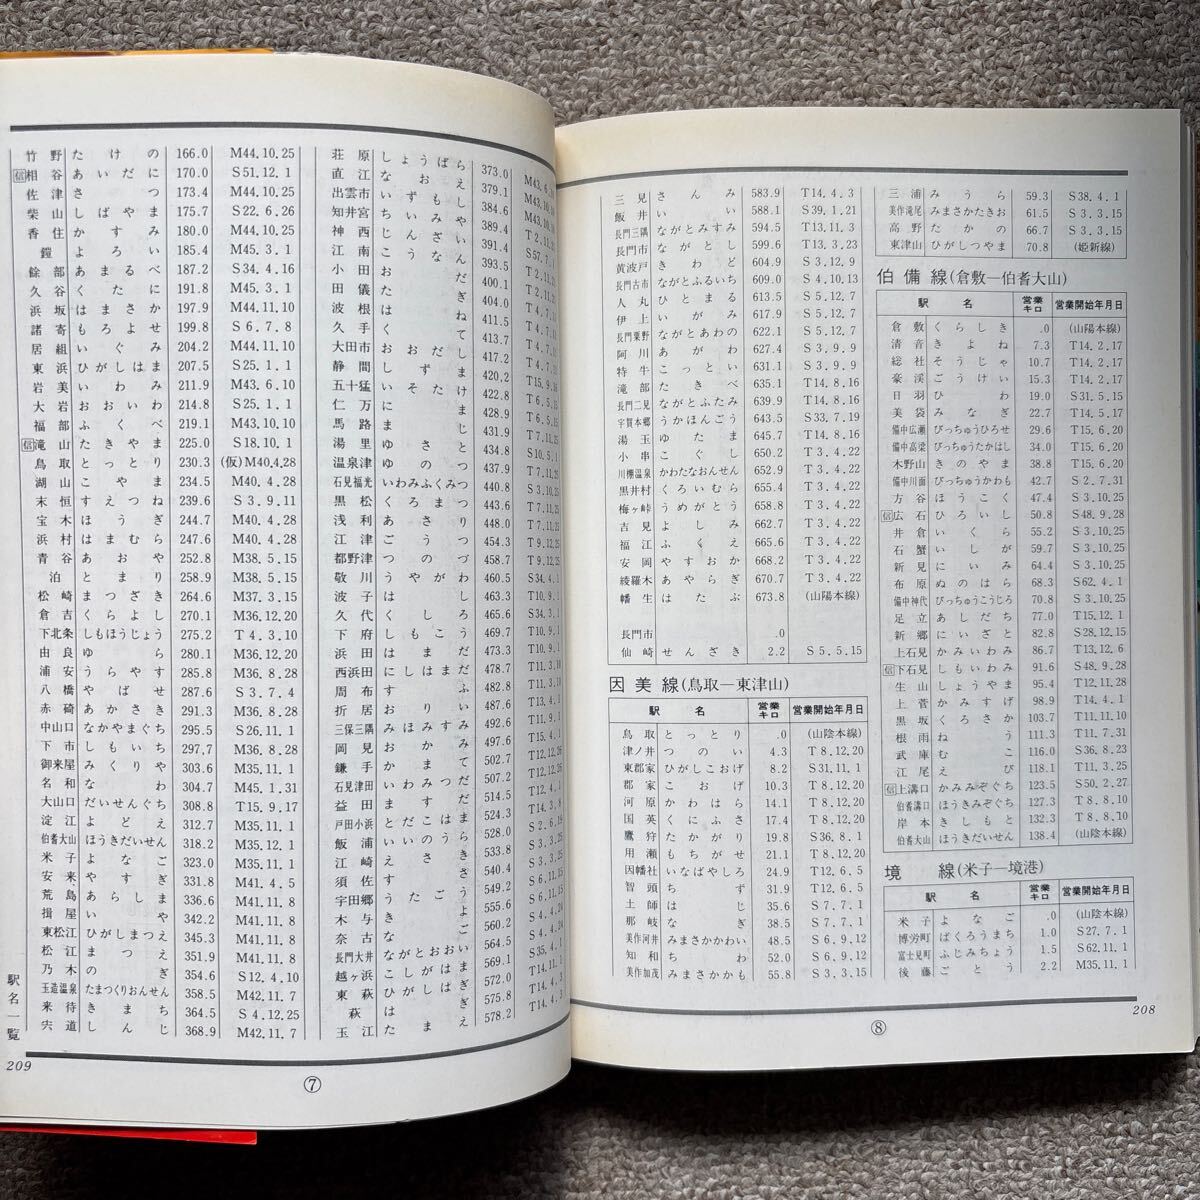 竹野 たけの 166.0 M44.10.25
信 相谷 あいだに 170.0 S51.12.1
佐津 さつ 173.4 M44.10.25
柴山 しばやま 175.7 S22.6.26
香住 かすみ 180.0 M44.10.25
鎧 よろい 185.4 M45.3.1
餘部 あまるべ 187.2 S34.4.16
久谷 くたに 191.8 M45.3.1
浜坂 はまさか 197.9 M44.11.10
諸寄 もろよせ 199.8 S6.7.8
居組 いぐみ 204.2 M44.11.10
東浜 ひがしはま 207.5 S25.1.1
岩美 いわみ 211.9 M43.6.10
大岩 おおいわ 214.8 S25.1.1
福部 ふくべ 219.1 M43.10.10
信 滝山 たきやま 225.0 S18.10.1
鳥取 とっとり 230.3 (仮)M40.4.28
湖山 こやま 234.5 M40.4.28
末恒 すえつね 239.6 S3.9.11
宝木 ほうぎ 244.7 M40.4.28
浜村 はまむら 247.6 M40.4.28
青谷 あおや 252.8 M38.5.15
泊 とまり 258.9 M38.5.15
松崎 まつざき 264.6 M37.3.15
倉吉 くらよし 270.1 M36.12.20
下北条 しもほうじょう 275.2 T4.3.10
由良 ゆら 280.1 M36.12.20
浦安 うらやす 285.8 M36.8.28
八橋 やばせ 287.6 S3.7.4
赤碕 あかさき 291.3 M36.8.28
中山口 なかやまぐち 295.5 S26.11.1
下市 しもいち 297.7 M36.8.28
御来屋 みくりや 303.6 M35.11.1
名和 なわ 304.7 M45.1.31
大山口 だいせんぐち 308.8 T15.9.17
淀江 よどえ 312.7 M35.11.1
伯耆大山 ほうきだいせん 318.2 M35.12.1
米子 よなご 323.0 M35.11.1
安来 やすぎ 331.8 M41.4.5
荒島 あらしま 336.6 M41.11.8
揖屋 いや 342.2 M41.11.8
東松江 ひがしまつえ 345.3 M41.11.8
松江 まつえ 351.9 M41.11.8
乃木 のぎ 354.6 S12.4.10
玉造温泉 たまつくりおんせん 358.5 M42.11.7
来待 きまち 364.5 S4.12.25
宍道 しんじ 368.9 M42.11.7
荘原 しょうばら 373.0
直江 なおえ 379.1 M43.10.10
出雲市 いずもし 384.6 M43.10.10
知井宮 ちいみや 389.4
神西 じんざい 391.4
江南 こうなん 393.5 S57.7.1
小田 おだ 400.1
田儀 たぎ 404.0
波根 はね 411.5
久手 くて 413.7
大田市 おおだし 417.2
静間 しずま 420.2
五十猛 いそたけ 422.8
仁万 にま 428.9
馬路 まじ 431.9
湯里 ゆさと 434.8
温泉津 ゆのつ 437.9
石見福光 いわみふくみつ 440.8
黒松 くろまつ 443.6
浅利 あさり 448.0
江津 ごうつ 454.3
都野津 つのづ 458.7
敬川 うやがわ 460.5 S34.4.1
波子 はし 463.3
久代 くしろ 465.6
下府 しもこう 469.7
浜田 はまだ 473.3
西浜田 にしはまだ 478.7
周布 すふ 482.8
折居 おりい 487.6
三保三隅 みほみすみ 492.6
岡見 おかみ 497.6
鎌手 かまて 502.7
石見津田 いわみつだ 507.2
益田 ますだ 514.5
戸田小浜 とだこはま 524.3
飯浦 いいのうら 528.0
江崎 えさき 533.8
須佐 すさ 540.4
宇田郷 うたごう 549.2
木与 きよ 555.6
奈古 なご 560.2
長門大井 ながとおおい 564.5
越ヶ浜 こしがはま 569.1
東萩 ひがしはぎ 572.0
萩 はぎ 575.8
玉江 たまえ 578.2
駅名一覧
209
⑦
三見 さんみ 583.9 T14.4.3
飯井 いい 588.1 S39.1.21
長門三隅 ながとみすみ 594.5 T13.11.3
長門市 ながとし 599.6 T13.3.23
黄波戸 きわど 604.9 S3.12.9
長門古市 ながとふるいち 609.0 S4.10.13
人丸 ひとまる 613.5 S5.12.7
伊上 いがみ 617.9 S5.12.7
長門粟野 ながとあわの 622.1 S5.12.7
阿川 あがわ 627.4 S3.9.9
特牛 こっとい 631.1 S3.9.9
滝部 たきべ 635.1 T14.8.16
長門二見 ながとふたみ 639.9 T14.8.16
宇賀本郷 うかほんごう 643.5 S33.7.19
湯玉 ゆたま 645.7 T14.8.16
小串 こぐし 650.2 T3.4.22
川棚温泉 かわたなおんせん 652.9 T3.4.22
黒井村 くろいむら 655.4 T3.4.22
梅ヶ峠 うめがとう 658.8 T3.4.22
吉見 よしみ 662.7 T3.4.22
福江 ふくえ 665.6 T3.4.22
安岡 やすおか 668.2 T3.4.22
綾羅木 あやらぎ 670.7 T3.4.22
幡生 はたぶ 673.8 (山陽本線)
長門市 .0
仙崎 せんざき 2.2 S5.5.15
因美線(鳥取―東津山)
駅名 営業キロ 営業開始年月日
鳥取 とっとり .0 (山陰本線)
津ノ井 つのい 4.3 T8.12.20
東郡家 ひがしこおげ 8.2 S31.11.1
郡家 こおげ 10.3 T8.12.20
河原 かわはら 14.1 T8.12.20
国英 くにふさ 17.4 T8.12.20
鷹狩 たかがり 19.8 S36.8.1
用瀬 もちがせ 21.1 T8.12.20
因幡社 いなばやしろ 24.9 T12.6.5
智頭 ちず 31.9 T12.6.5
土師 はじ 35.6 S7.7.1
那岐 なぎ 38.5 S7.7.1
美作河井 みまさかかわい 48.5 S6.9.12
知和 ちわ 52.0 S6.9.12
美作加茂 みまさかかも 55.8 S3.3.15
三浦 みうら 59.3 S38.4.1
美作滝尾 みまさかたきお 61.5 S3.3.15
高野 たかの 66.7 S3.3.15
東津山 ひがしつやま 70.8 (姫新線)
伯備線(倉敷―伯耆大山)
駅名 営業キロ 営業開始年月日
倉敷 くらしき .0 (山陽本線)
清音 きよね 7.3 T14.2.17
総社 そうじゃ 10.7 T14.2.17
豪渓 ごうけい 15.3 T14.2.17
日羽 ひわ 19.0 S31.5.15
美袋 みなぎ 22.7 T14.5.17
備中広瀬 びっちゅうひろせ 29.6 T15.6.20
備中高梁 びっちゅうたかはし 34.0 T15.6.20
木野山 きのやま 38.8 T15.6.20
備中川面 びっちゅうかわも 42.7 S2.7.31
方谷 ほうこく 47.4 S3.10.25
信 広石 ひろいし 50.8 S48.9.28
井倉 いくら 55.2 S3.10.25
石蟹 いしが 59.7 S3.10.25
新見 にいみ 64.4 S3.10.25
布原 ぬのはら 68.3 S62.4.1
備中神代 びっちゅうこうじろ 70.8 S3.10.25
足立 あしだち 77.0 T15.12.1
新郷 にいざと 82.8 S28.12.15
上石見 かみいわみ 86.7 T13.12.6
信 下石見 しもいわみ 91.6 S48.9.28
生山 しょうやま 95.4 T12.11.28
上菅 かみすげ 98.9 T14.4.1
黒坂 くろさか 103.7 T11.11.10
根雨 ねう 111.3 T11.7.31
武庫 むこ 116.0 S36.8.23
江尾 えび 118.1 T11.3.25
信 上溝口 かみみぞぐち 123.5 S50.2.27
伯耆溝口 ほうきみぞぐち 127.3 T8.8.10
岸本 きしもと 132.3 T8.8.10
伯耆大山 ほうきだいせん 138.4 (山陰本線)
境線(米子―境港)
駅名 営業キロ 営業開始年月日
米子 よなご .0 (山陰本線)
博労町 ばくろうまち 1.0 S27.7.1
富士見町 ふじみちょう 1.5 S62.11.1
後藤 ごとう 2.2 M35.11.1
208
⑧